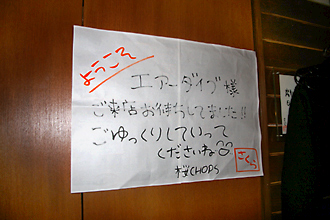 ようこそ
エアーダイブ様
ご来店お待ちしてました!!
ごゆっくりしていって
くださいね
桜CHOPS
さくら